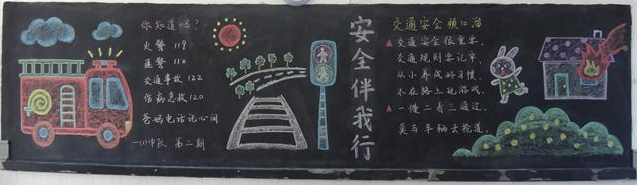 你知道吗?
火警 119
匪警 110
交通事故 122
伤病急救 120
爸妈电话记心间
一(1)中队 第二期
安全伴我行
交通安全顺口溜
交通安全很重要,
交通规则要记牢,
从小养成好习惯,
不在路上玩游戏,
一慢二看三通过,
莫与车辆去抢道。